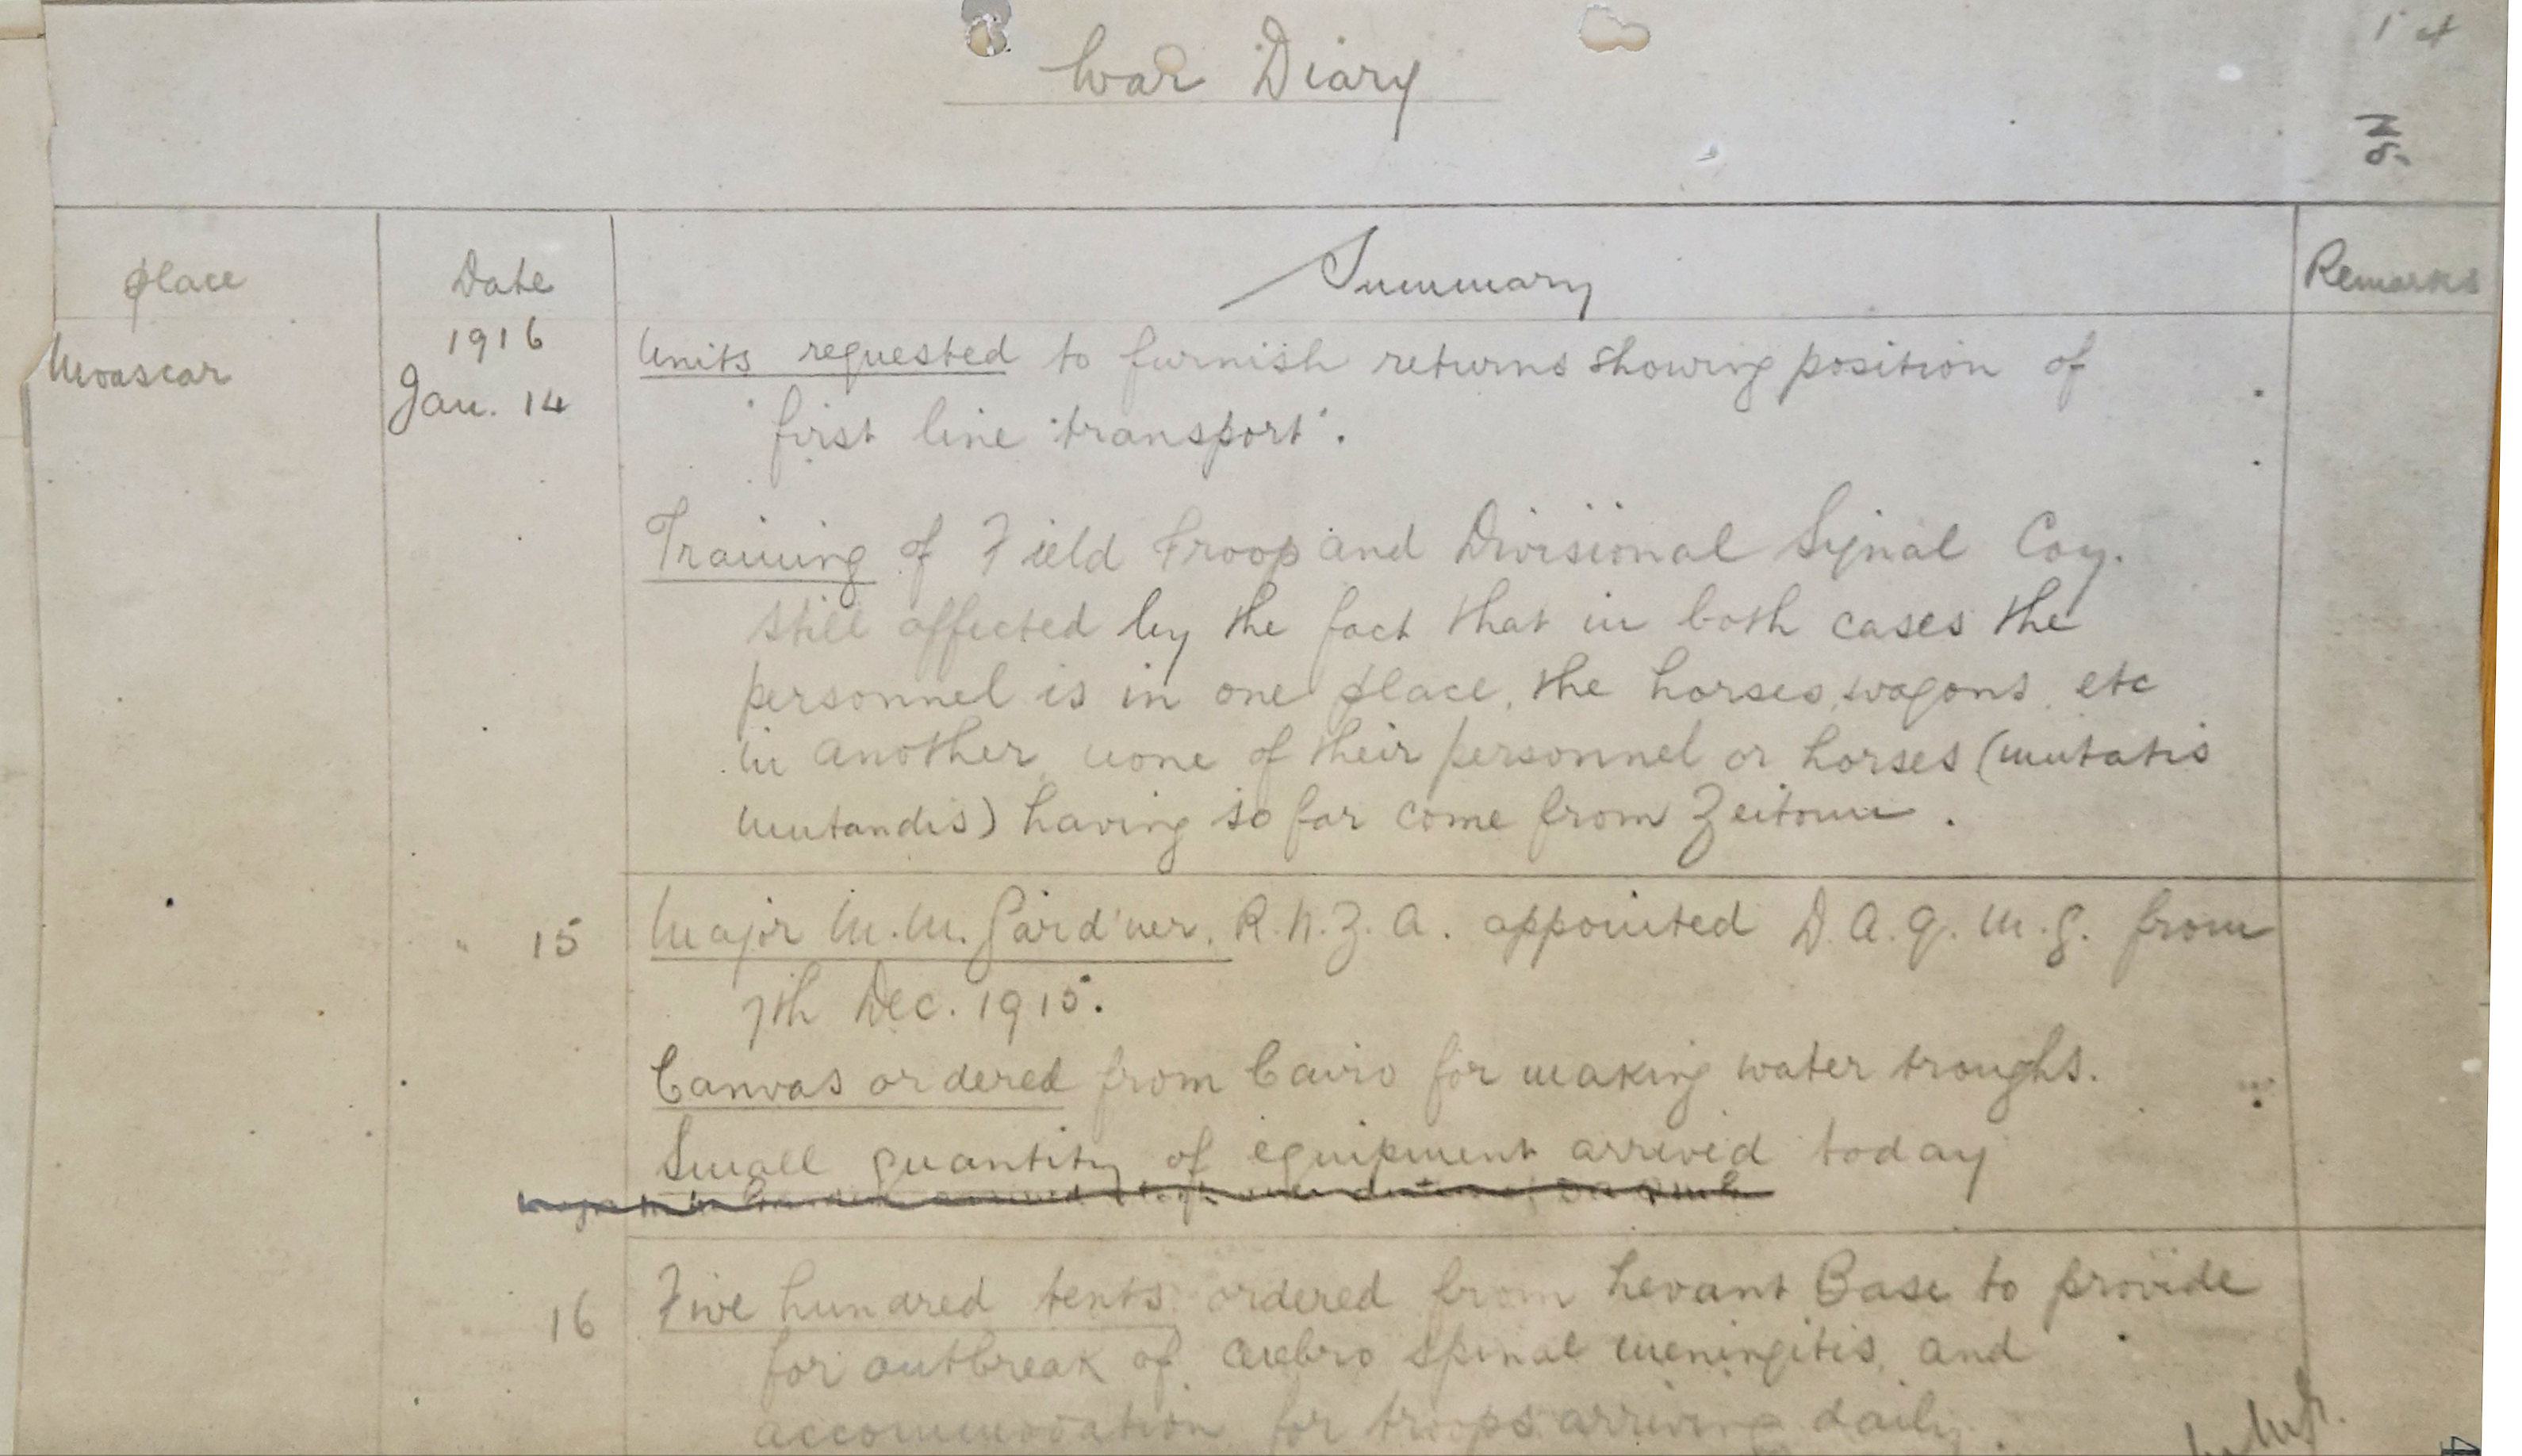 War Diary
Place Date Summary Remarks
Moascar 1916 Units requested to furnish returns showing position of
Jan. 14 first line 'transport'.
Training of Field Troop and Divisional Signal Coy.
still affected by the fact that in both cases the
personnel is in one place, the horses, wagons, etc
in another, none of their personnel or horses (mutatis
mutandis) having so far come from Zeitoun.
" 15 Major M.M. Gard'ner, R.N.Z.A. appointed D.A.Q.M.G. from
7th Dec. 1915.
Canvas ordered from Cairo for making water troughs.
Small quantity of equipment arrived today
16 Five hundred tents ordered from Levant Base to provide
for outbreak of cerebro spinal meningitis, and
accommodation for troops arriving daily.